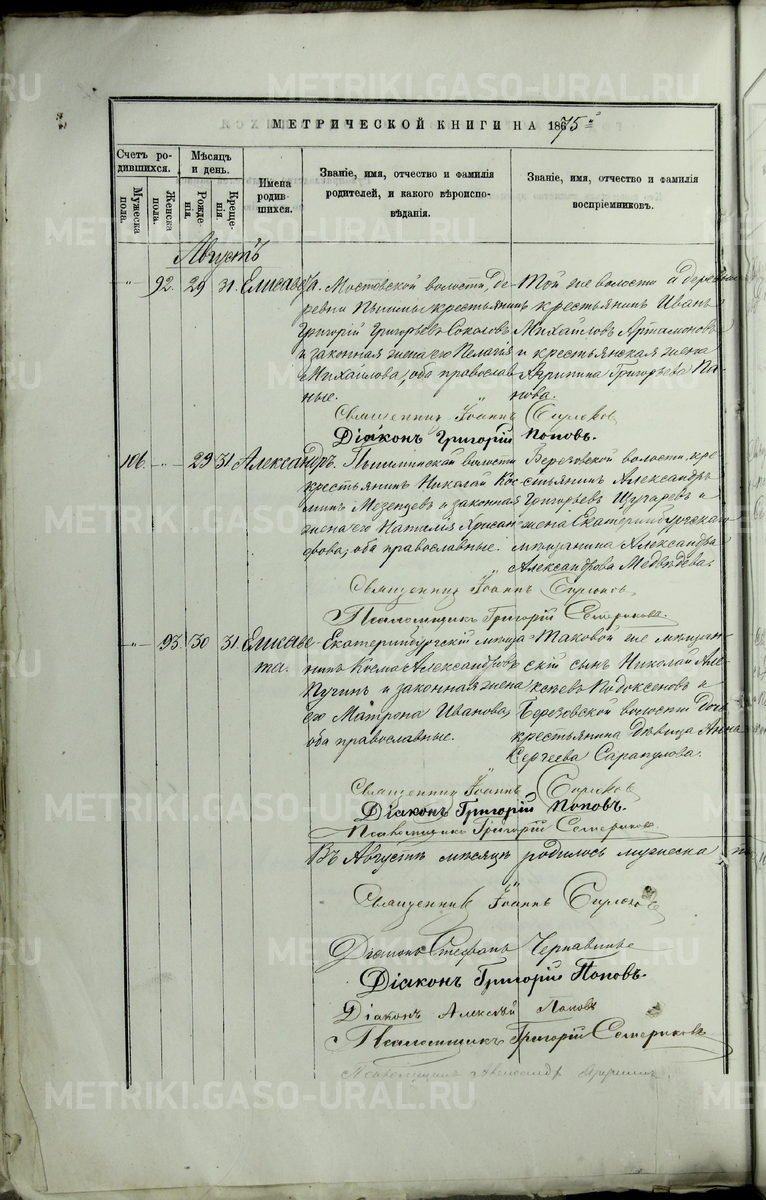 МЕТРИЧЕСКОЙ КНИГИ НА 1875
Счетъ родившихся.
Мужеска пола.
Женска пола.
Мѣсяцъ и день.
Рожденія.
Крещенія.
Имена родившихся.
Званіе, имя, отчество и фамилія родителей, и какого вѣроисповѣданія.
Званіе, имя, отчество и фамилія воспріемниковъ.
Августъ
92. 29 31. Елисавета.
Мостовской волости, деревни Пышмы крестьянинъ
Григорій Григорьевъ Соколовъ
и законная жена его Пелагія
Михайлова, оба православные.
Той же волости и деревни
крестьянинъ Иванъ
Михаиловъ Артамоновъ
и крестьянская жена
Агрипина Григорьева Попова.
Священникъ Іоаннъ
Діаконъ Григорій Поповъ.
106. 29 31 Александръ.
Пышминской волости
крестьянинъ Николай Косминъ
Мезенцевъ и законная
жена его Наталія Хрисанфова; оба православные.
Березовской волости кре-
стьянинъ Александръ
Григорьевъ и
жена Екатеринбургскаго
мѣщанина Александра
Александрова Медвѣдева.
Священникъ Іоаннъ
Псаломщикъ Григорій Семериковъ.
93. 30 31. Елисавета.
Екатеринбургскій мѣщанинъ
Косма Александровъ
Пучинъ и законная жена
его Матрона Иванова,
оба православные.
Таковой же мѣщанскій
сынъ Николай Алексѣевъ
Подоксеновъ и
Березовской волости дочь
крестьянина дѣвица Анна
Сергеева Сарапулова.
Священникъ Іоаннъ
Діаконъ Григорій Поповъ.
Псаломщикъ Григорій Семериковъ.
Въ Августѣ мѣсяцѣ родилось мужеска
Священникъ Іоаннъ
Діаконъ Стефанъ Чернавинъ
Діаконъ Григорій Поповъ.
Діаконъ Алексѣй Поповъ
Псаломщикъ Григорій Семериковъ
Псаломщикъ Александръ
METRIKI.GASO-URAL.RU